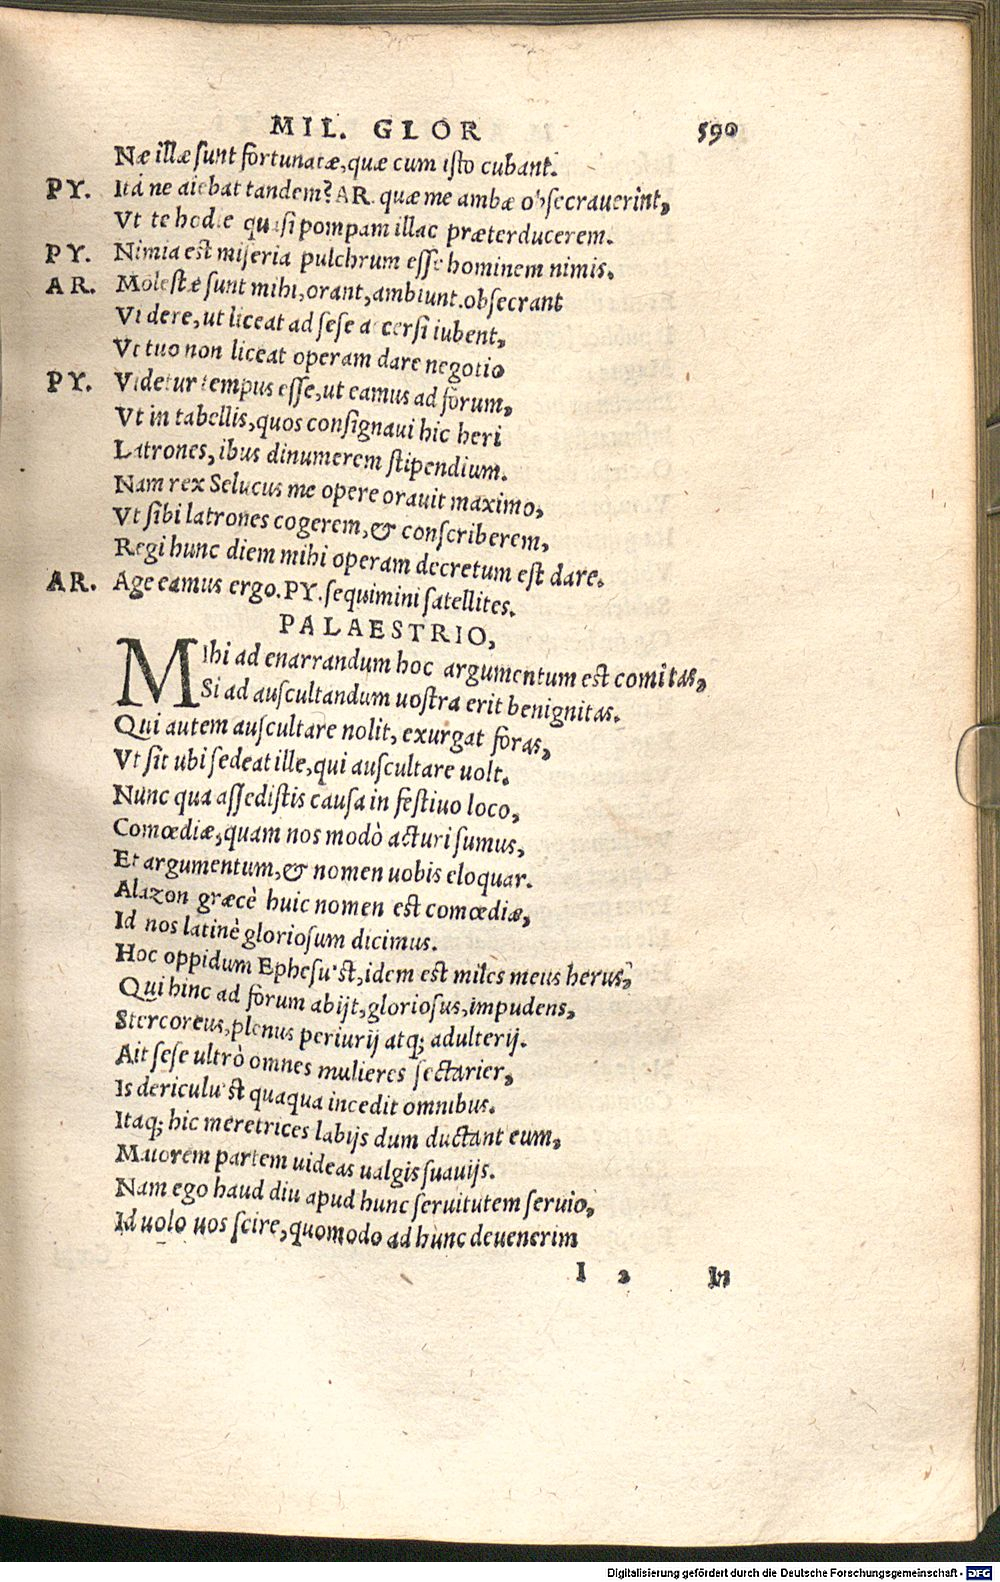 MIL. GLOR 590
Næ illæ sunt fortunatæ, quæ cum isto cubant.
PY. Itá ne aiebat tandem? AR. quæ me ambæ obsecrauerint,
Vt te hodie quasi pompam illac præterducerem.
PY. Nimia est miseria pulchrum esse hominem nimis.
AR. Molestæ sunt mihi, orant, ambiunt. obsecrant
Videre, ut liceat ad sese accersi iubent,
Vt tuo non liceat operam dare negotio
PY. Videtur tempus esse, ut eamus ad forum,
Vt in tabellis, quos consignaui hic heri
Latrones, ibus dinumerem stipendium.
Nam rex Selucus me opere orauit maximo,
Vt sibi latrones cogerem, & conscriberem,
Regi hunc diem mihi operam decretum est dare.
AR. Age eamus ergo. PY. sequimini satellites.
PALAESTRIO,
MIhi ad enarrandum hoc argumentum est comitas,
Si ad auscultandum uostra erit benignitas.
Qui autem auscultare nolit, exurgat foras,
Vt sit ubi sedeat ille, qui auscultare uolt.
Nunc qua assedistis causa in festiuo loco,
Comœdiæ, quam nos modò acturi sumus,
Et argumentum, & nomen uobis eloquar.
Alazon græcè huic nomen est comœdiæ,
Id nos latinè gloriosum dicimus.
Hoc oppidum Ephesu'st, idem est miles meus herus,
Qui hinc ad forum abijt, gloriosus, impudens,
Stercoreus, plenus periurij atq; adulterij.
Ait sese ultrò omnes mulieres sectarier,
Is dericulu'st quaqua incedit omnibus.
Itaq; hic meretrices labijs dum ductant eum,
Maiorem partem uideas ualgis suauijs.
Nam ego haud diu apud hunc seruitutem seruio,
Id uolo uos scire, quomodo ad hunc deuenerim
I 2 In
Digitalisierung gefördert durch die Deutsche Forschungsgemeinschaft - DFG